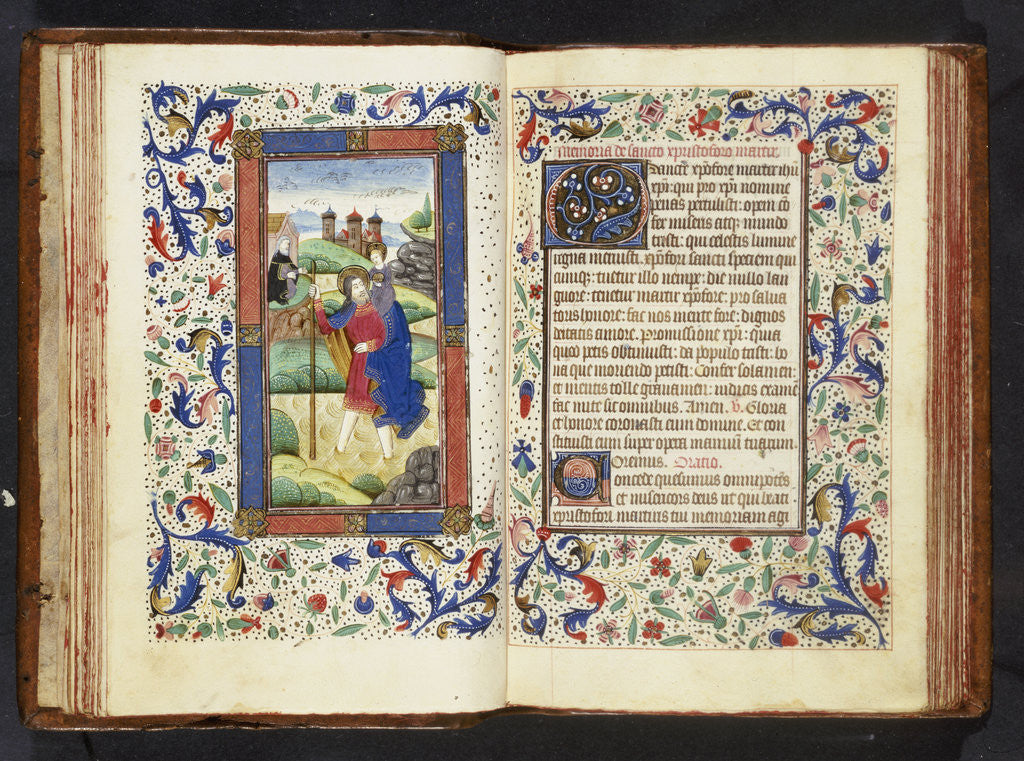 Memoria de sancto xpristoforo martir.
Sancte xpofore martir ihu
xpi: qui pro xpi nomine
penas pertulisti: opem co
fer miseris atq; mundo
tristi: qui celestis lumine
regna meruisti. xpofori sancti speciem qui
cumq; tuetur illo nempe die nullo lan
guore tenetur martir xpofore: pro salua
toris honore: fac nos mente fore: dignos
deitatis amore. Promissione xpi: quia
quod petis obtinuisti: da populo tristi: bo
na que moriendo petisti: Confer solamen:
et mentis tolle grauamen: iudicis exame
fac mite sit omnibus. Amen. v. Gloria
et honore coronasti eum domine. Et con
stituisti eum super opera manuu tuarum.
Oremus. Oratio.
Concede quesumus omnipotes
et misericors deus ut qui beati
xpristofori martiris tui memoriam agi